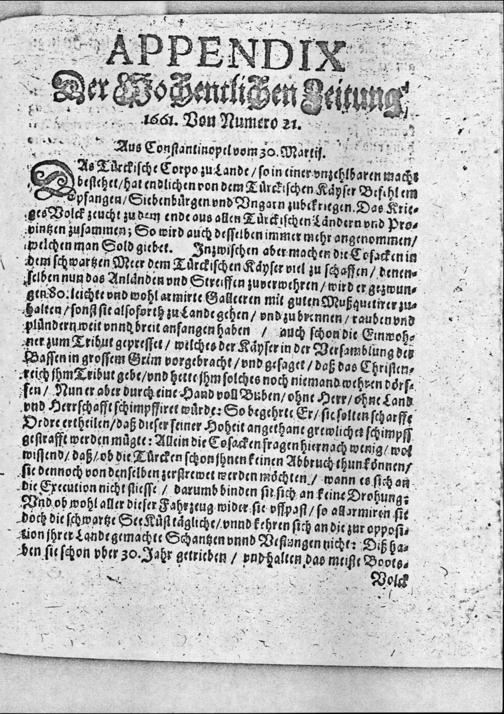 APPENDIX
Der Wochentlichen Zeitung
1661. Von Numero 21.
Aus Constantinopel vom 30. Martij.
DAs Türckische Corpo zu Lande / so in einer vnzehlbaren macht
bestehet / hat endlichen von dem Türckischen Käyser Befehl em
pfangen / Siebenbürgen vnd Vngarn zubekriegen. Das Krie-
ges Volck zeucht zu dem ende aus allen Türckischen Ländern vnd Pro-
vintzen zusammen; So wird auch desselben immer mehr angenommen /
welchen man Sold giebet. Inzwischen aber machen die Cosacken in
dem schwartzen Meer dem Türckischen Käyser viel zu schaffen / denen-
selben nun das Anländen vnd Streiffen zuverwehren / wird er gezwun-
gen 80. leichte vnd wohl armirte Galleeren mit guten Mußquetirer zu-
halten / sonst sie alsoforth zu Lande gehen / vnd zu brennen / rauben vnd
plündern weit vnnd breit anfangen haben / auch schon die Einwoh-
ner zum Tribut gepresset / welches der Käyser in der Versamblung der
Bassen in grossem Grim vorgebracht / vnd gesaget / daß das Christen-
reich ihm Tribut gebe / vnd hette ihm solches noch niemand wehren dörf-
fen / Nun er aber durch eine Hand voll Buben / ohne Herr / ohne Land
vnd Herrschafft schimpffiret würde: So begehrte Er / sie solten scharffe
Ordre ertheilen / daß dieser seiner Hoheit angethane grewliche schimpff
gestrafft werden mügte: Allein die Cosacken fragen hiernach wenig / wol
wissend / daß / ob die Türcken schon ihnen keinen Abbruch thun können /
sie dennoch von denselben zerstrewet werden möchten / wann es sich an
die Execution nicht stiesse / darumb binden sie sich an keine Drohung:
Vnd ob wohl aller dieser Fahrzeug wider sie vffpast / so allarmiren sie
doch die schwartze See Küst tägliche / vnnd kehren sich an die zur opposi-
tion ihrer Lande gemachte Schantzen vnnd Vestungen nicht: Diß ha-
ben sie schon vber 30. Jahr getrieben / vnd halten das meiste Boots-
Volck